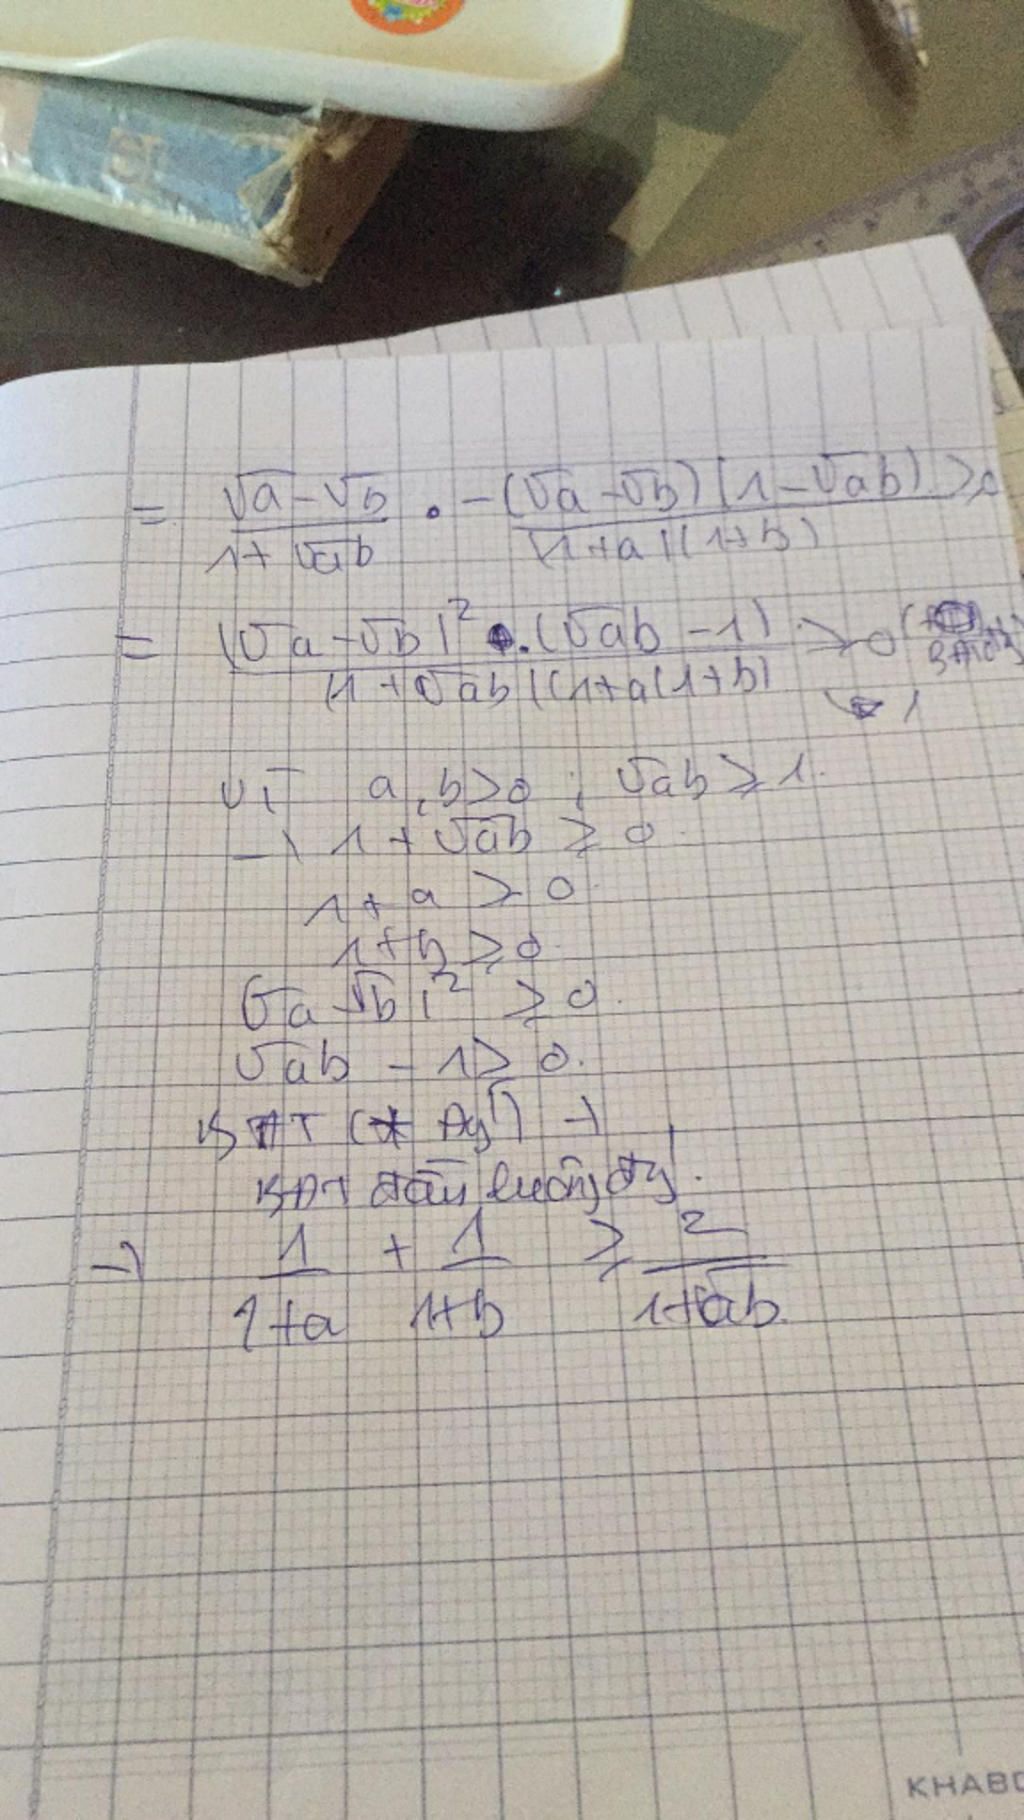 = √a - √b / 1 + √ab . -(√a - √b)(1 - √ab) / (1+a)(1+b) ≥ 0
= (√a - √b)² . (√ab - 1) / (1 + √ab)(1+a(1+b) ≥ 0
vì a, b > 0 ; √ab ≥ 1.
→ 1 + √ab ≥ 0.
1 + a > 0
1 + b ≥ 0.
(√a √b)² ≥ 0.
√ab - 1 ≥ 0.
BĐT (*
BĐT đầu luông đg.
→ 1 / 1+a + 1 / 1+b ≥ 2 / 1+√ab.
KHABO